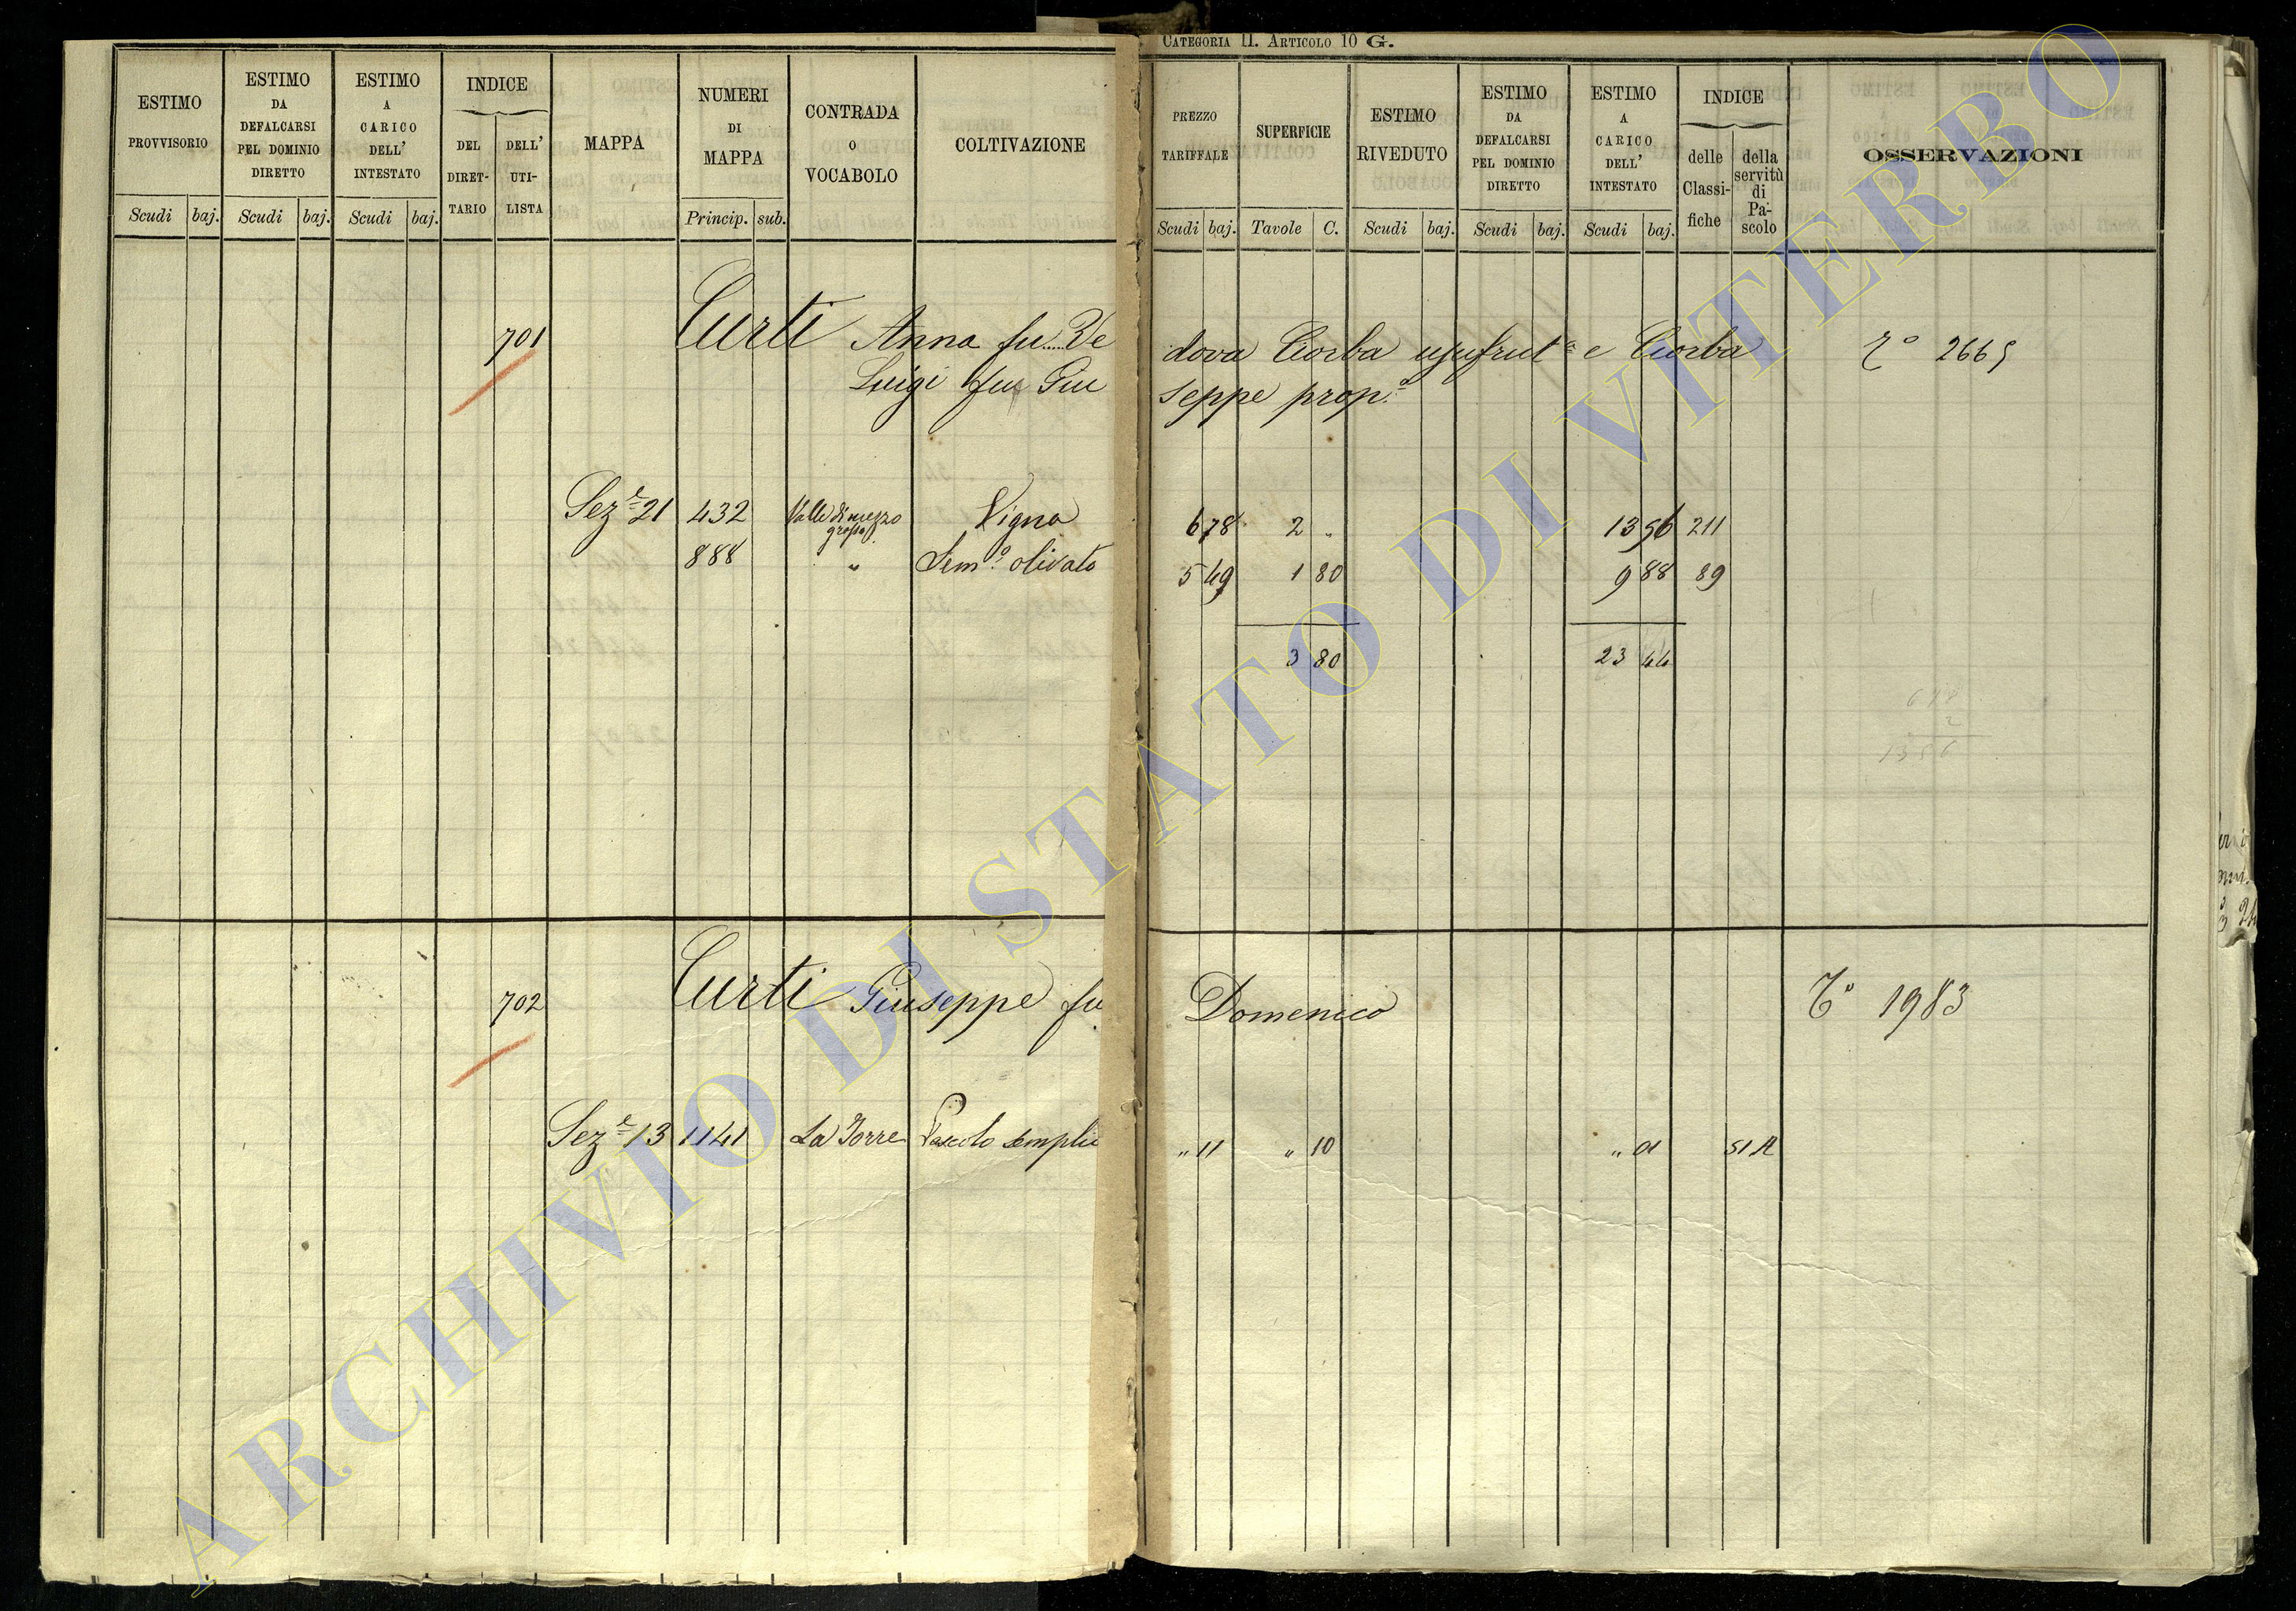 CATEGORIA II. ARTICOLO 10 G.
ESTIMO PROVVISORIO Scudi baj.
ESTIMO DA DEFALCARSI PEL DOMINIO DIRETTO Scudi baj.
ESTIMO A CARICO DELL' INTESTATO Scudi baj.
INDICE DEL DIRET-TARIO DELL' UTI-LISTA
MAPPA
NUMERI DI MAPPA Princip. sub.
CONTRADA O VOCABOLO
COLTIVAZIONE
PREZZO TARIFFALE Scudi baj.
SUPERFICIE Tavole C.
ESTIMO RIVEDUTO Scudi baj.
ESTIMO DA DEFALCARSI PEL DOMINIO DIRETTO Scudi baj.
ESTIMO A CARICO DELL' INTESTATO Scudi baj.
INDICE delle Classi-fiche della servitù di Pa-scolo
OSSERVAZIONI
701 Curti Anna fu .... Ve dova Ciorba usufrut.ª e Ciorba 2669
Luigi fu Giu seppe prop.º
Sez.e 21 432 Valle di mezzo grossa Vigna 6 78 2 „ 13 56 211
888 „ Sem.º olivato 5 49 1 80 9 88 89
3 80 23 44
678
2
1356
702 Curti Giuseppe fu Domenico T.º 1983
Sez.e 13 1141 La Torre Pascolo semplic „ 11 „ 10 „ 01 51 A
ARCHIVIO DI STATO DI VITERBO